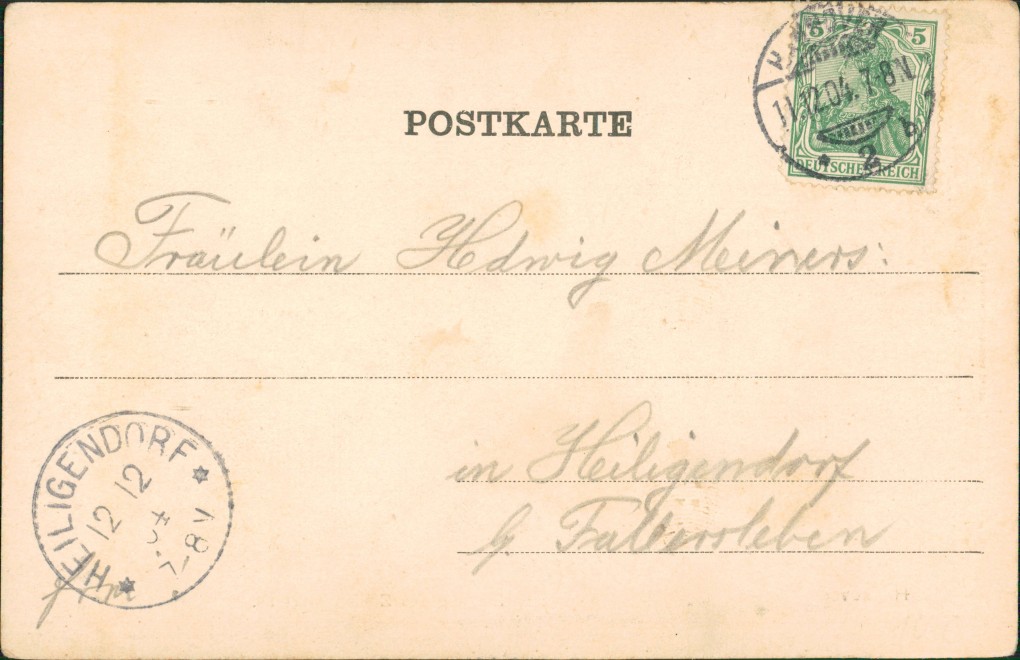 5 5
11.12.04. 7-8N
* 2 b
DEUTSCHES REICH
POSTKARTE
Fräulein Hedwig Meiners:
in Heiligendorf
b/ Fallersleben
HEILIGENDORF
12 12
04
7-8V